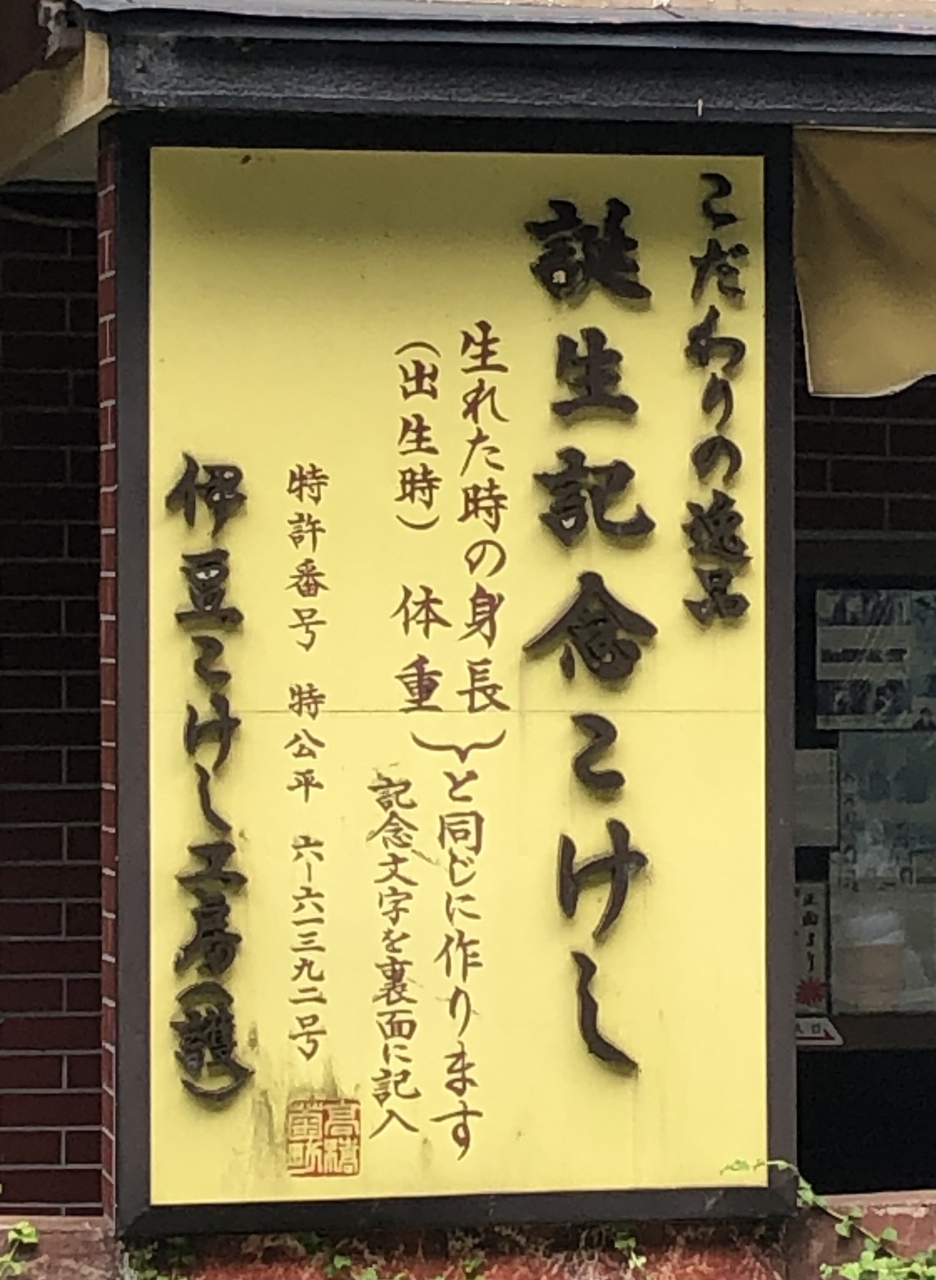 こだわりの逸品
誕生記念こけし
生れた時の身長
(出生時) 体重
と同じに作ります
記念文字を裏面に記入
特許番号 特公平 六ー六一三九二号
伊豆こけし工房(護)
正面より
入口